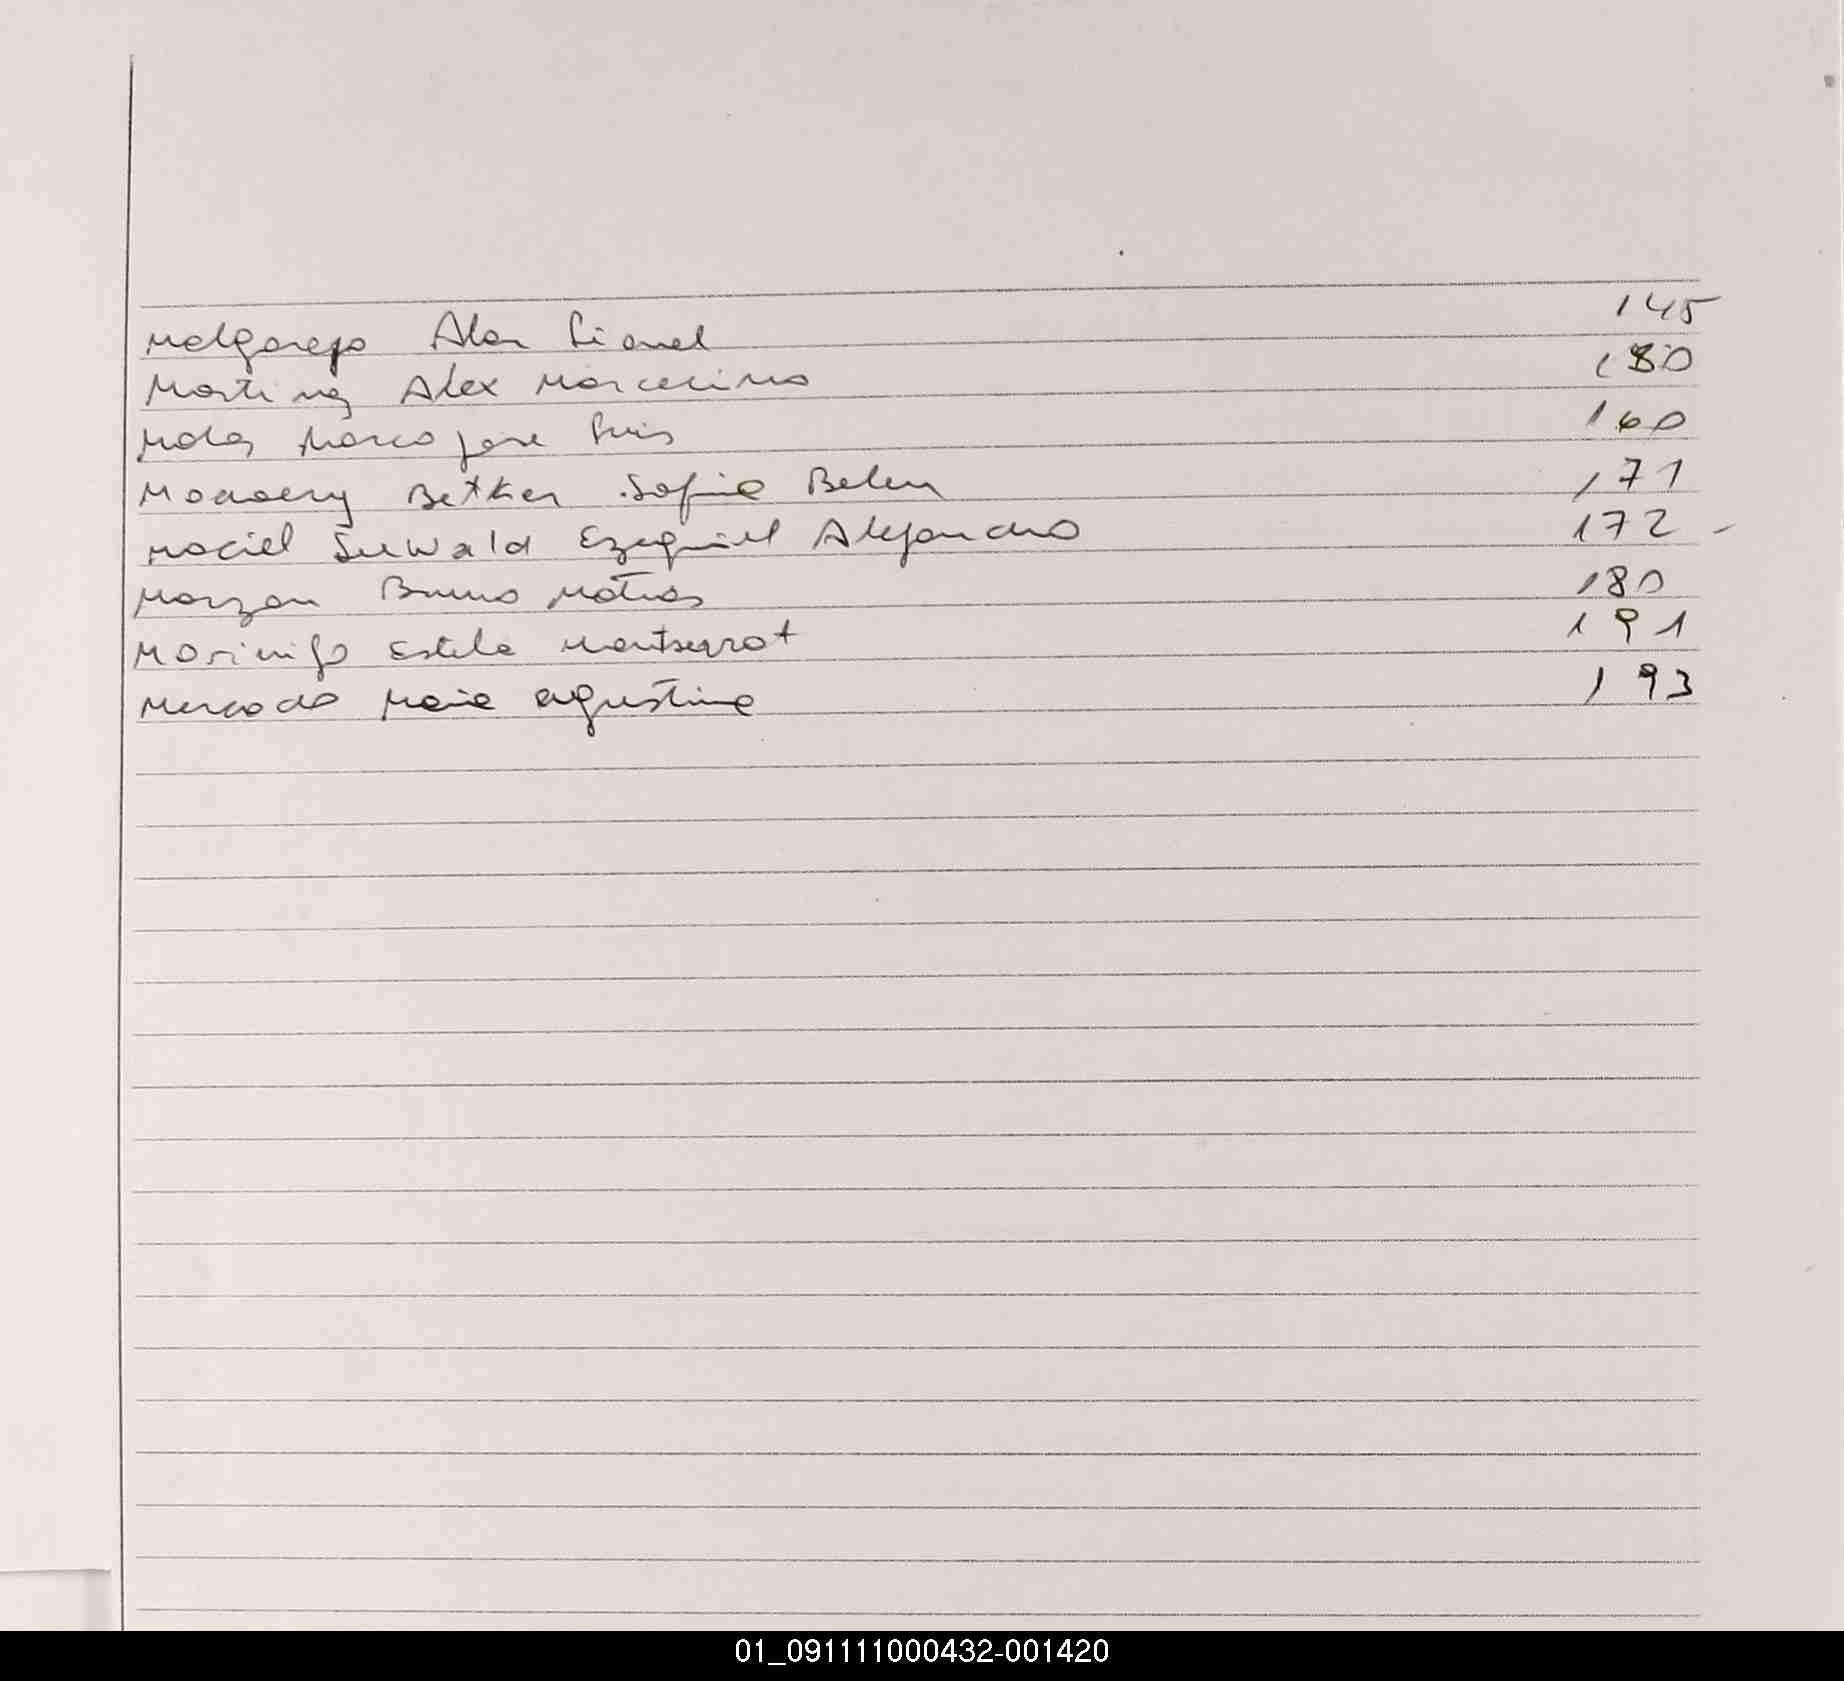 Melgarejo Alan Lionel 145
Martinez Alex Marcelino 180
Mola Marco Jose Luis 160
Betker Sofia Belen 171
Maciel Suwald Ezequiel Alejandro 172 -
Marzan Bruno Matias 180
Marinigo Estela Montserrat 191
Mercado Maia agustina 193
01_091111000432-001420